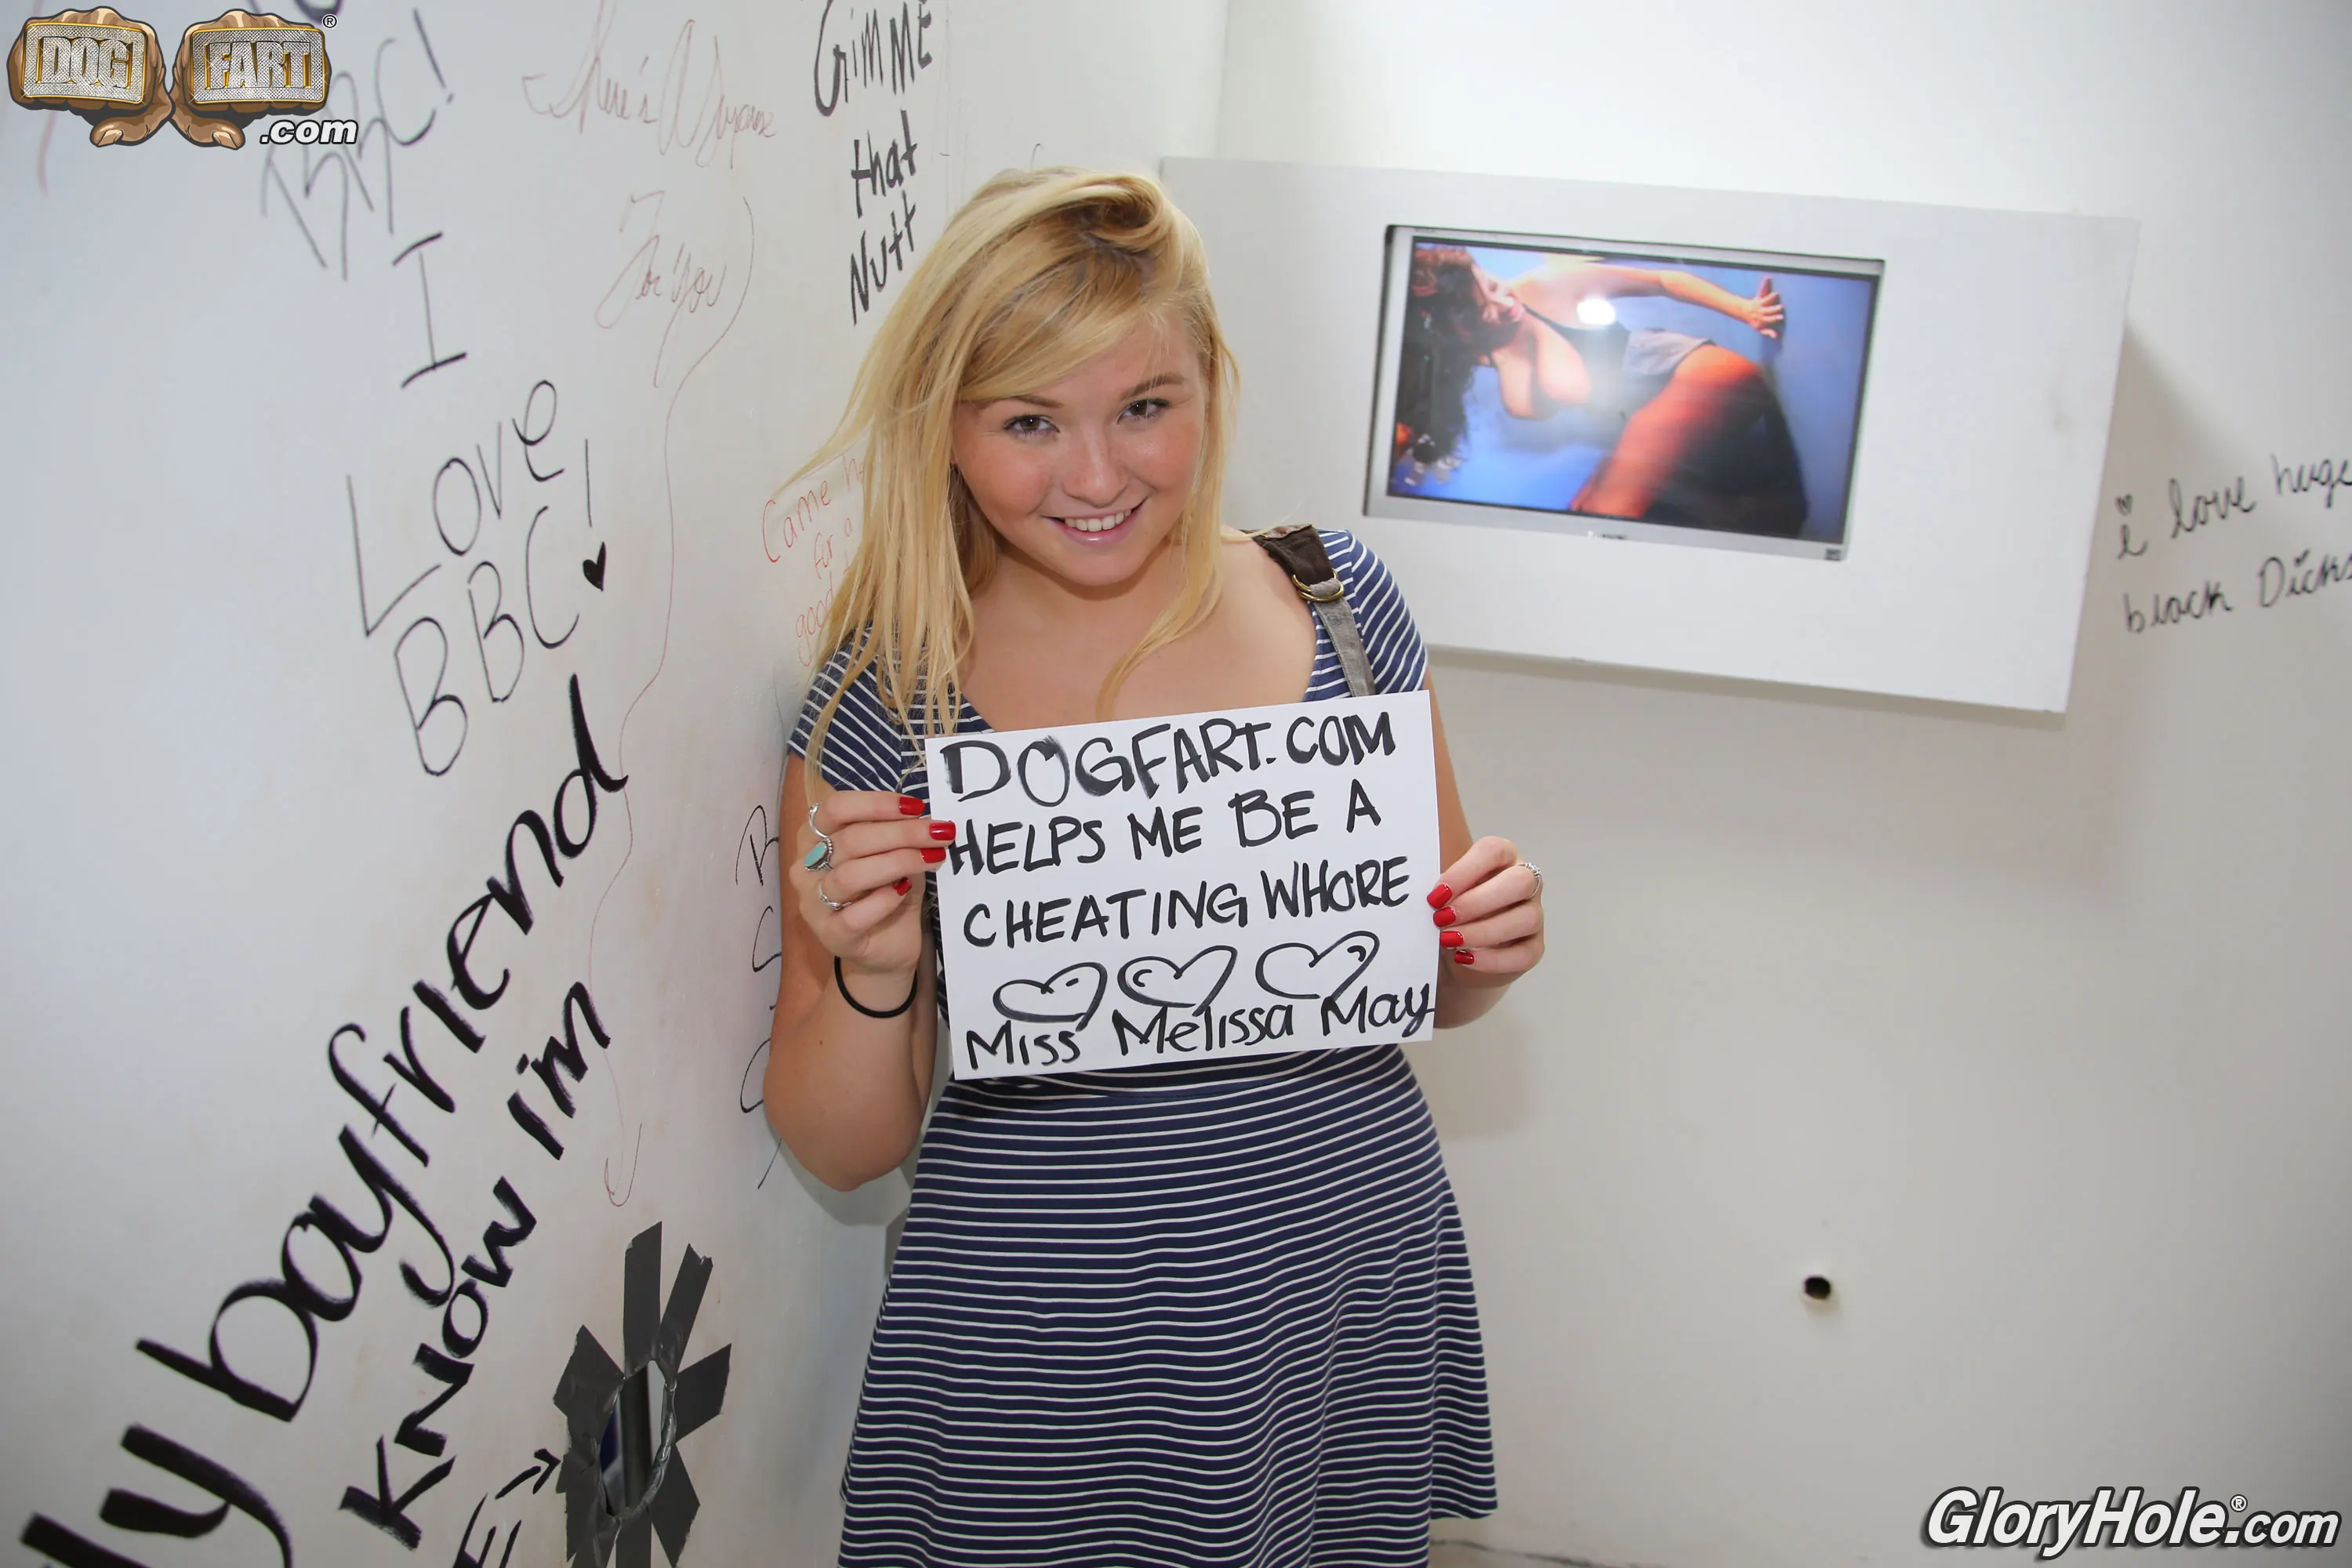 DOG FART®
.com
BBC!
I
Love
BBC!
Here's
For You
Gimme
that
Nutt
Came
for a
good
boyfriend
Know i'm
DOGFART.COM
HELPS ME BE A
CHEATING WHORE
Miss Melissa May
i love huge
black Dicks
GloryHole®.com